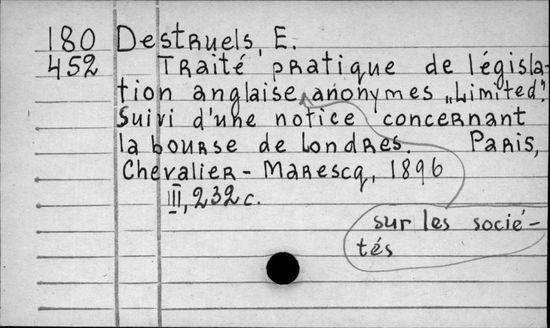 180 Destruels, E.
452 Traité pratique de législa-
tion anglaise anonymes „Limited".
Suivi d'une notice concernant
la bourse de Londres. Paris,
Chevalier-Marescq, 1896
III, 232 c.
sur les socié-
tés